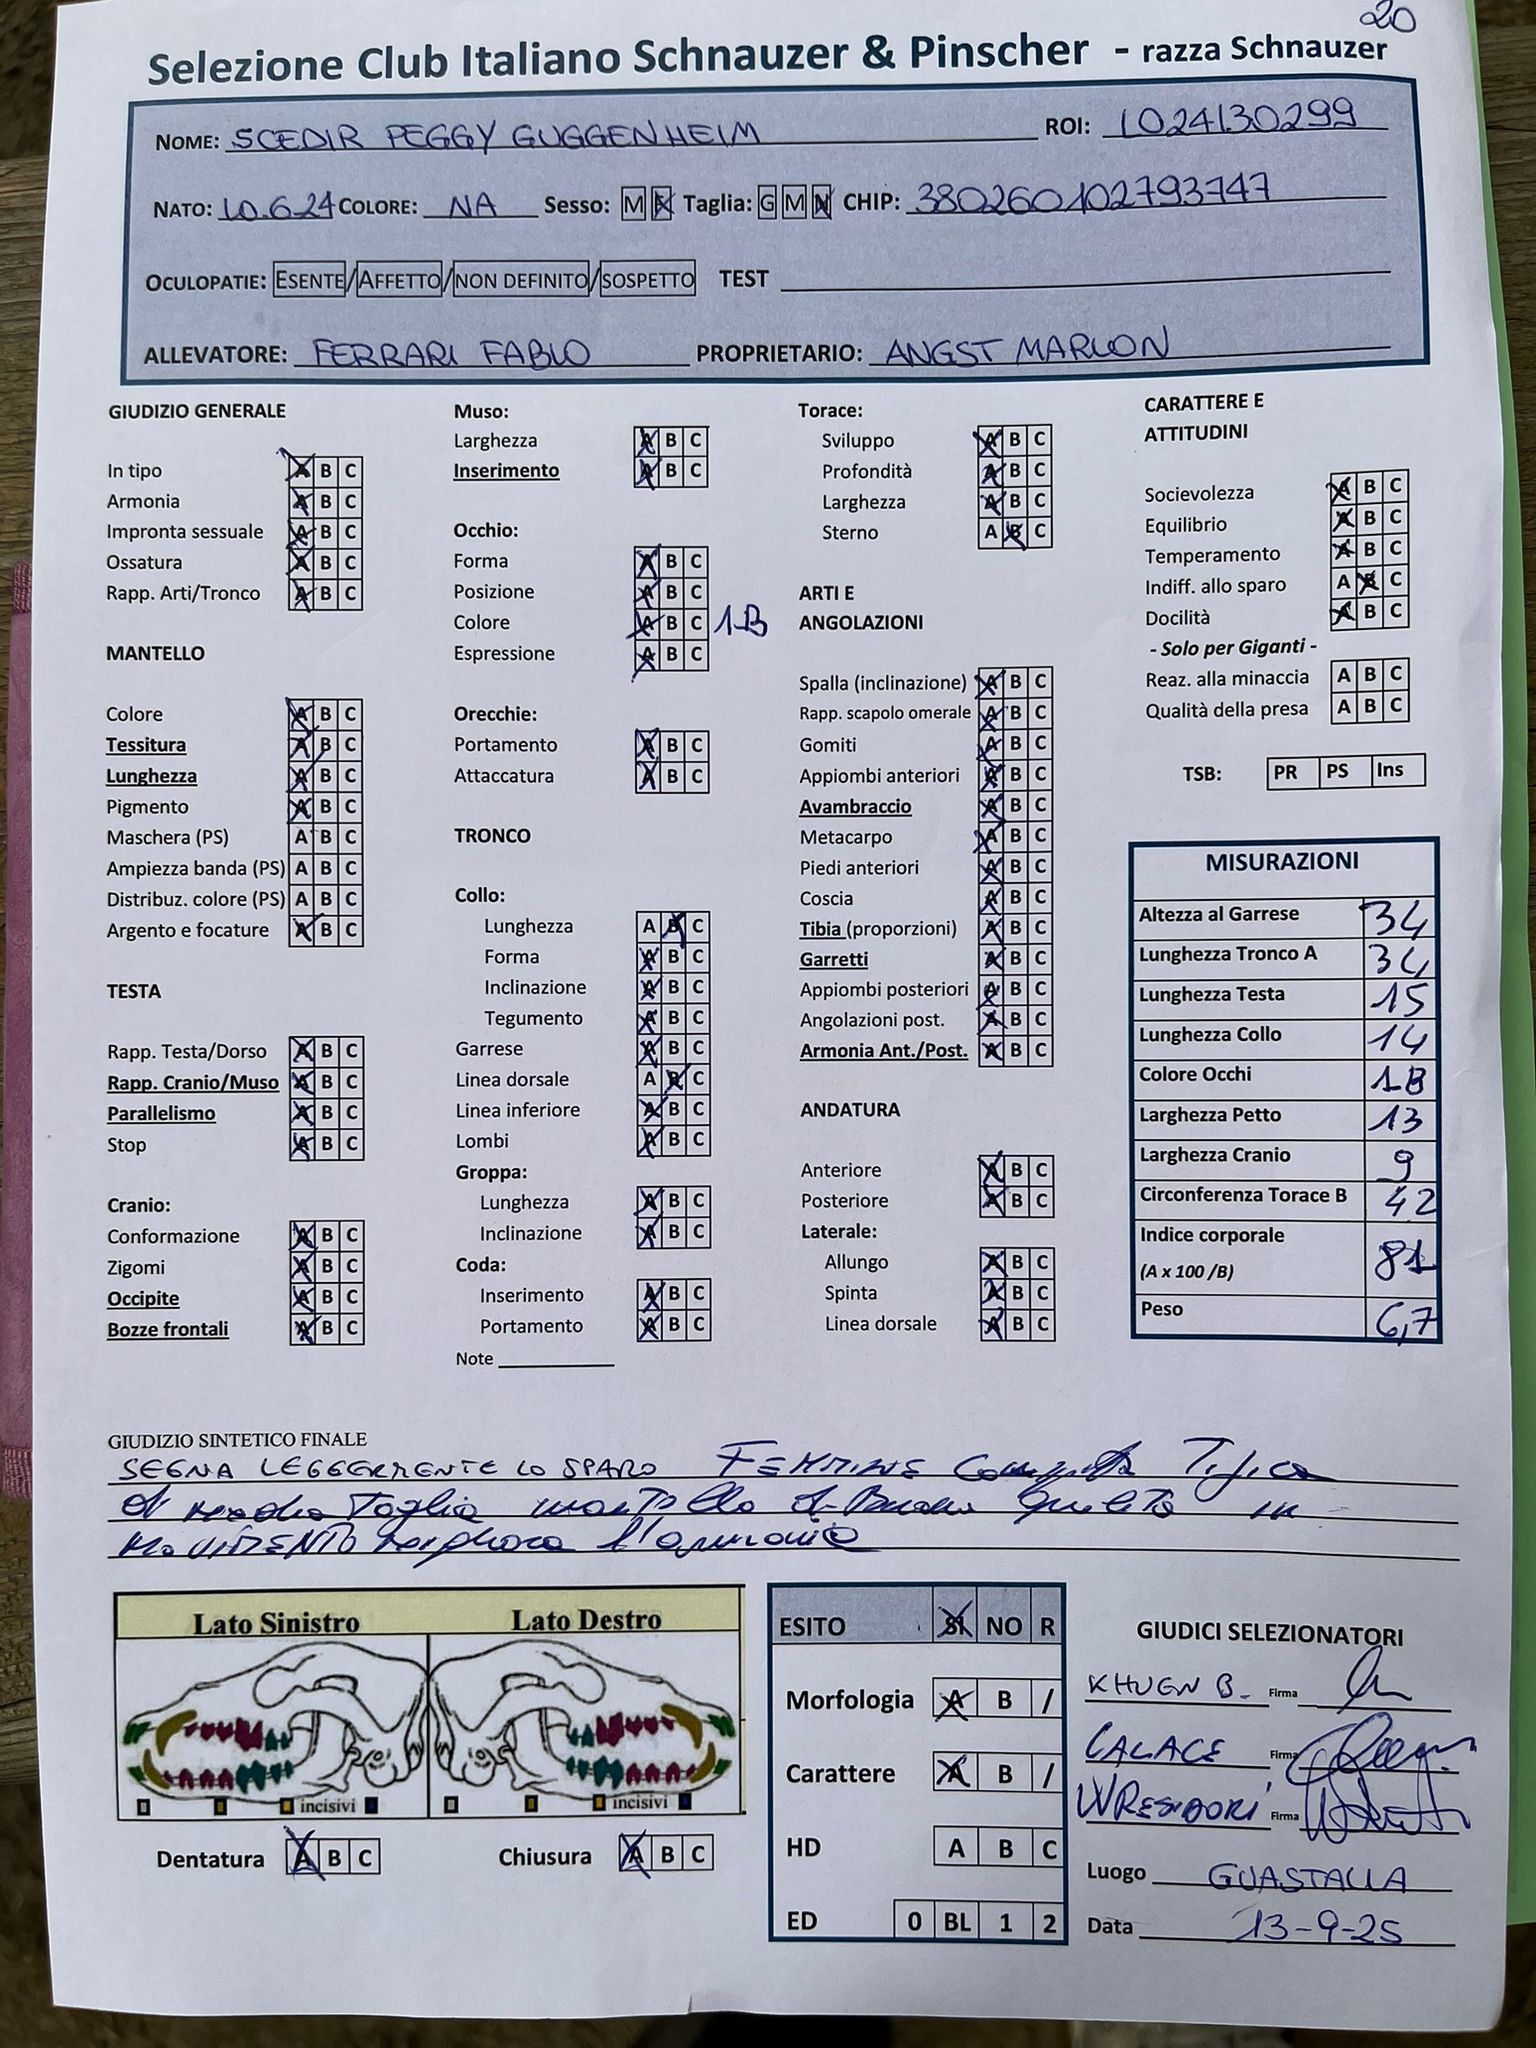 20
Selezione Club Italiano Schnauzer & Pinscher - razza Schnauzer
NOME: SCEDIR PEGGY GUGGENHEIM ROI: LO24130299
NATO: 10.6.24 COLORE: NA Sesso: M F Taglia: G M N CHIP: 380260102793747
OCULOPATIE: ESENTE/AFFETTO/NON DEFINITO/SOSPETTO TEST
ALLEVATORE: FERRARI FABIO PROPRIETARIO: ANGST MARLON
GIUDIZIO GENERALE
In tipo A B C
Armonia A B C
Impronta sessuale A B C
Ossatura A B C
Rapp. Arti/Tronco A B C
MANTELLO
Colore A B C
Tessitura A B C
Lunghezza A B C
Pigmento A B C
Maschera (PS) A B C
Ampiezza banda (PS) A B C
Distribuz. colore (PS) A B C
Argento e focature A B C
TESTA
Rapp. Testa/Dorso A B C
Rapp. Cranio/Muso A B C
Parallelismo A B C
Stop A B C
Cranio:
Conformazione A B C
Zigomi A B C
Occipite A B C
Bozze frontali A B C
Muso:
Larghezza A B C
Inserimento A B C
Occhio:
Forma A B C
Posizione A B C
Colore A B C 1B
Espressione A B C
Orecchie:
Portamento A B C
Attaccatura A B C
TRONCO
Collo:
Lunghezza A B C
Forma A B C
Inclinazione A B C
Tegumento A B C
Garrese A B C
Linea dorsale A B C
Linea inferiore A B C
Lombi A B C
Groppa:
Lunghezza A B C
Inclinazione A B C
Coda:
Inserimento A B C
Portamento A B C
Note
Torace:
Sviluppo A B C
Profondità A B C
Larghezza A B C
Sterno A B C
ARTI E
ANGOLAZIONI
Spalla (inclinazione) A B C
Rapp. scapolo omerale A B C
Gomiti A B C
Appiombi anteriori A B C
Avambraccio A B C
Metacarpo A B C
Piedi anteriori A B C
Coscia A B C
Tibia (proporzioni) A B C
Garretti A B C
Appiombi posteriori A B C
Angolazioni post. A B C
Armonia Ant./Post. A B C
ANDATURA
Anteriore A B C
Posteriore A B C
Laterale:
Allungo A B C
Spinta A B C
Linea dorsale A B C
CARATTERE E
ATTITUDINI
Socievolezza A B C
Equilibrio A B C
Temperamento A B C
Indiff. allo sparo A B C
Docilità A B C
- Solo per Giganti -
Reaz. alla minaccia A B C
Qualità della presa A B C
TSB: PR PS Ins
MISURAZIONI
Altezza al Garrese 34
Lunghezza Tronco A 34
Lunghezza Testa 15
Lunghezza Collo 14
Colore Occhi 1B
Larghezza Petto 13
Larghezza Cranio 9
Circonferenza Torace B 42
Indice corporale 81
(A x 100 /B)
Peso 6,7
GIUDIZIO SINTETICO FINALE
SEGNA LEGGERMENTE LO SPARO Tipica
di media Taglia mantello di Buona qualità in
MOVIMENTO l'armonia
Lato Sinistro Lato Destro
incisivi incisivi
Dentatura A B C Chiusura A B C
ESITO SI NO R
Morfologia A B /
Carattere A B /
HD A B C
ED 0 BL 1 2
GIUDICI SELEZIONATORI
KHUEN B. Firma
CALACE Firma
Firma
Luogo GUASTALLA
Data 13-9-25